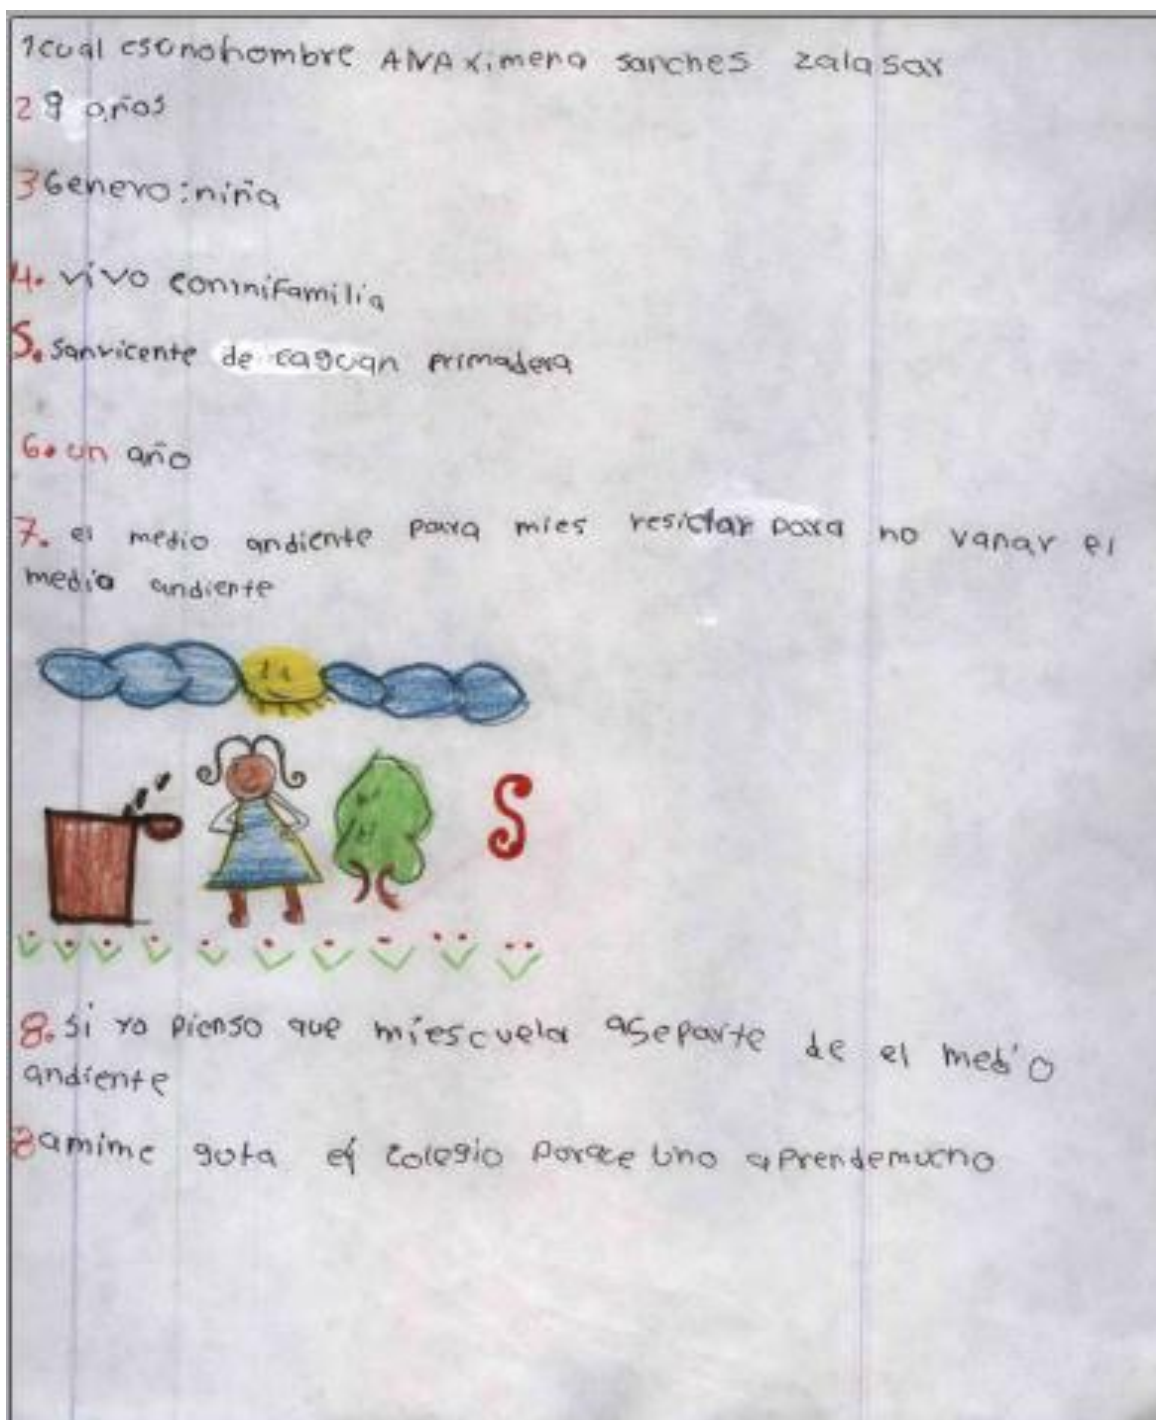 1cual esunohombre ANA ximena sanches zalasar
2 9 años
3 Genero: niña
4. vivo conmifamilia
5. sanvicente de caguan primadera
6. un año
7. el medio andiente para mies resiclar para no vanar el
medio andiente
S
8. si yo pienso que miescuela aseparte de el medio
andiente
8 amime gota el colegio porqce uno aprendemucho